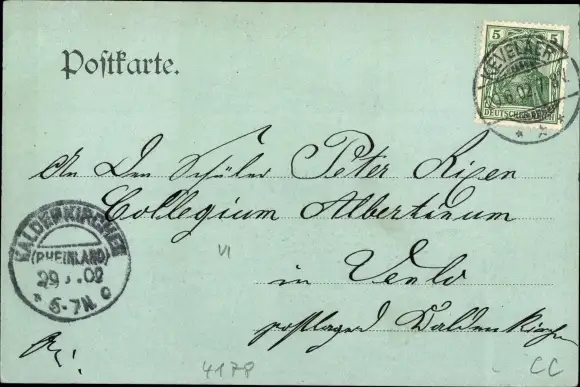 Postkarte.
5
KEVELAER
DEUTSCHES REICH
An Den Schüler Peter
Collegium Albertinum
in Venlo
postlagernd Kaldenkirchen
KALDENKIRCHEN
(RHEINLAND)
29 . 02
* 6-7N. c
VI
4178
CC